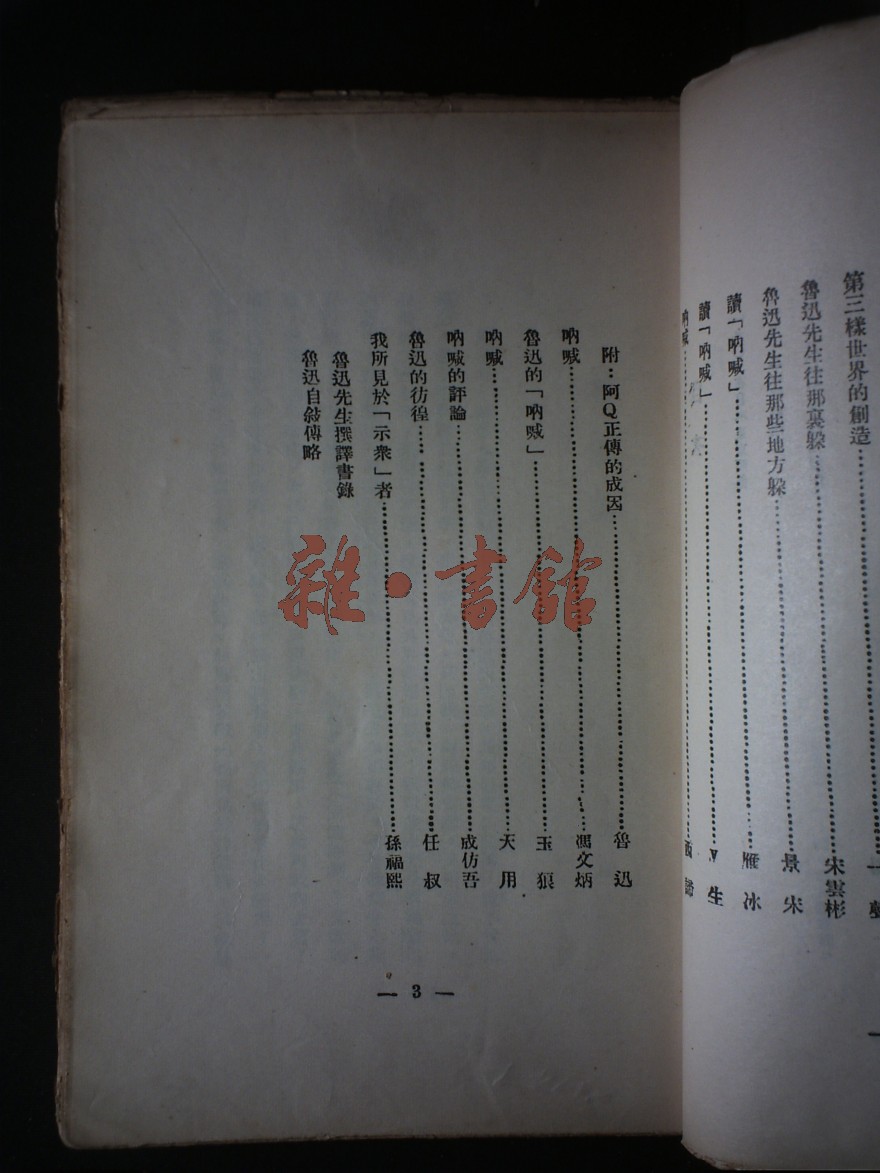 第三樣世界的創造……一
魯迅先生往那裏躱……宋雲彬
魯迅先生往那些地方躱……景宋
讀「吶喊」……雁冰
讀「吶喊」……Y生
吶喊……
附：阿Q正傳的成因……魯迅
吶喊……馮文炳
魯迅的「吶喊」……玉狼
吶喊……天用
吶喊的評論……成仿吾
魯迅的彷徨……任叔
我所見於「示衆」者……孫福熙
魯迅先生撰譯書錄
魯迅自敍傳略
— 3 —
雜·書館